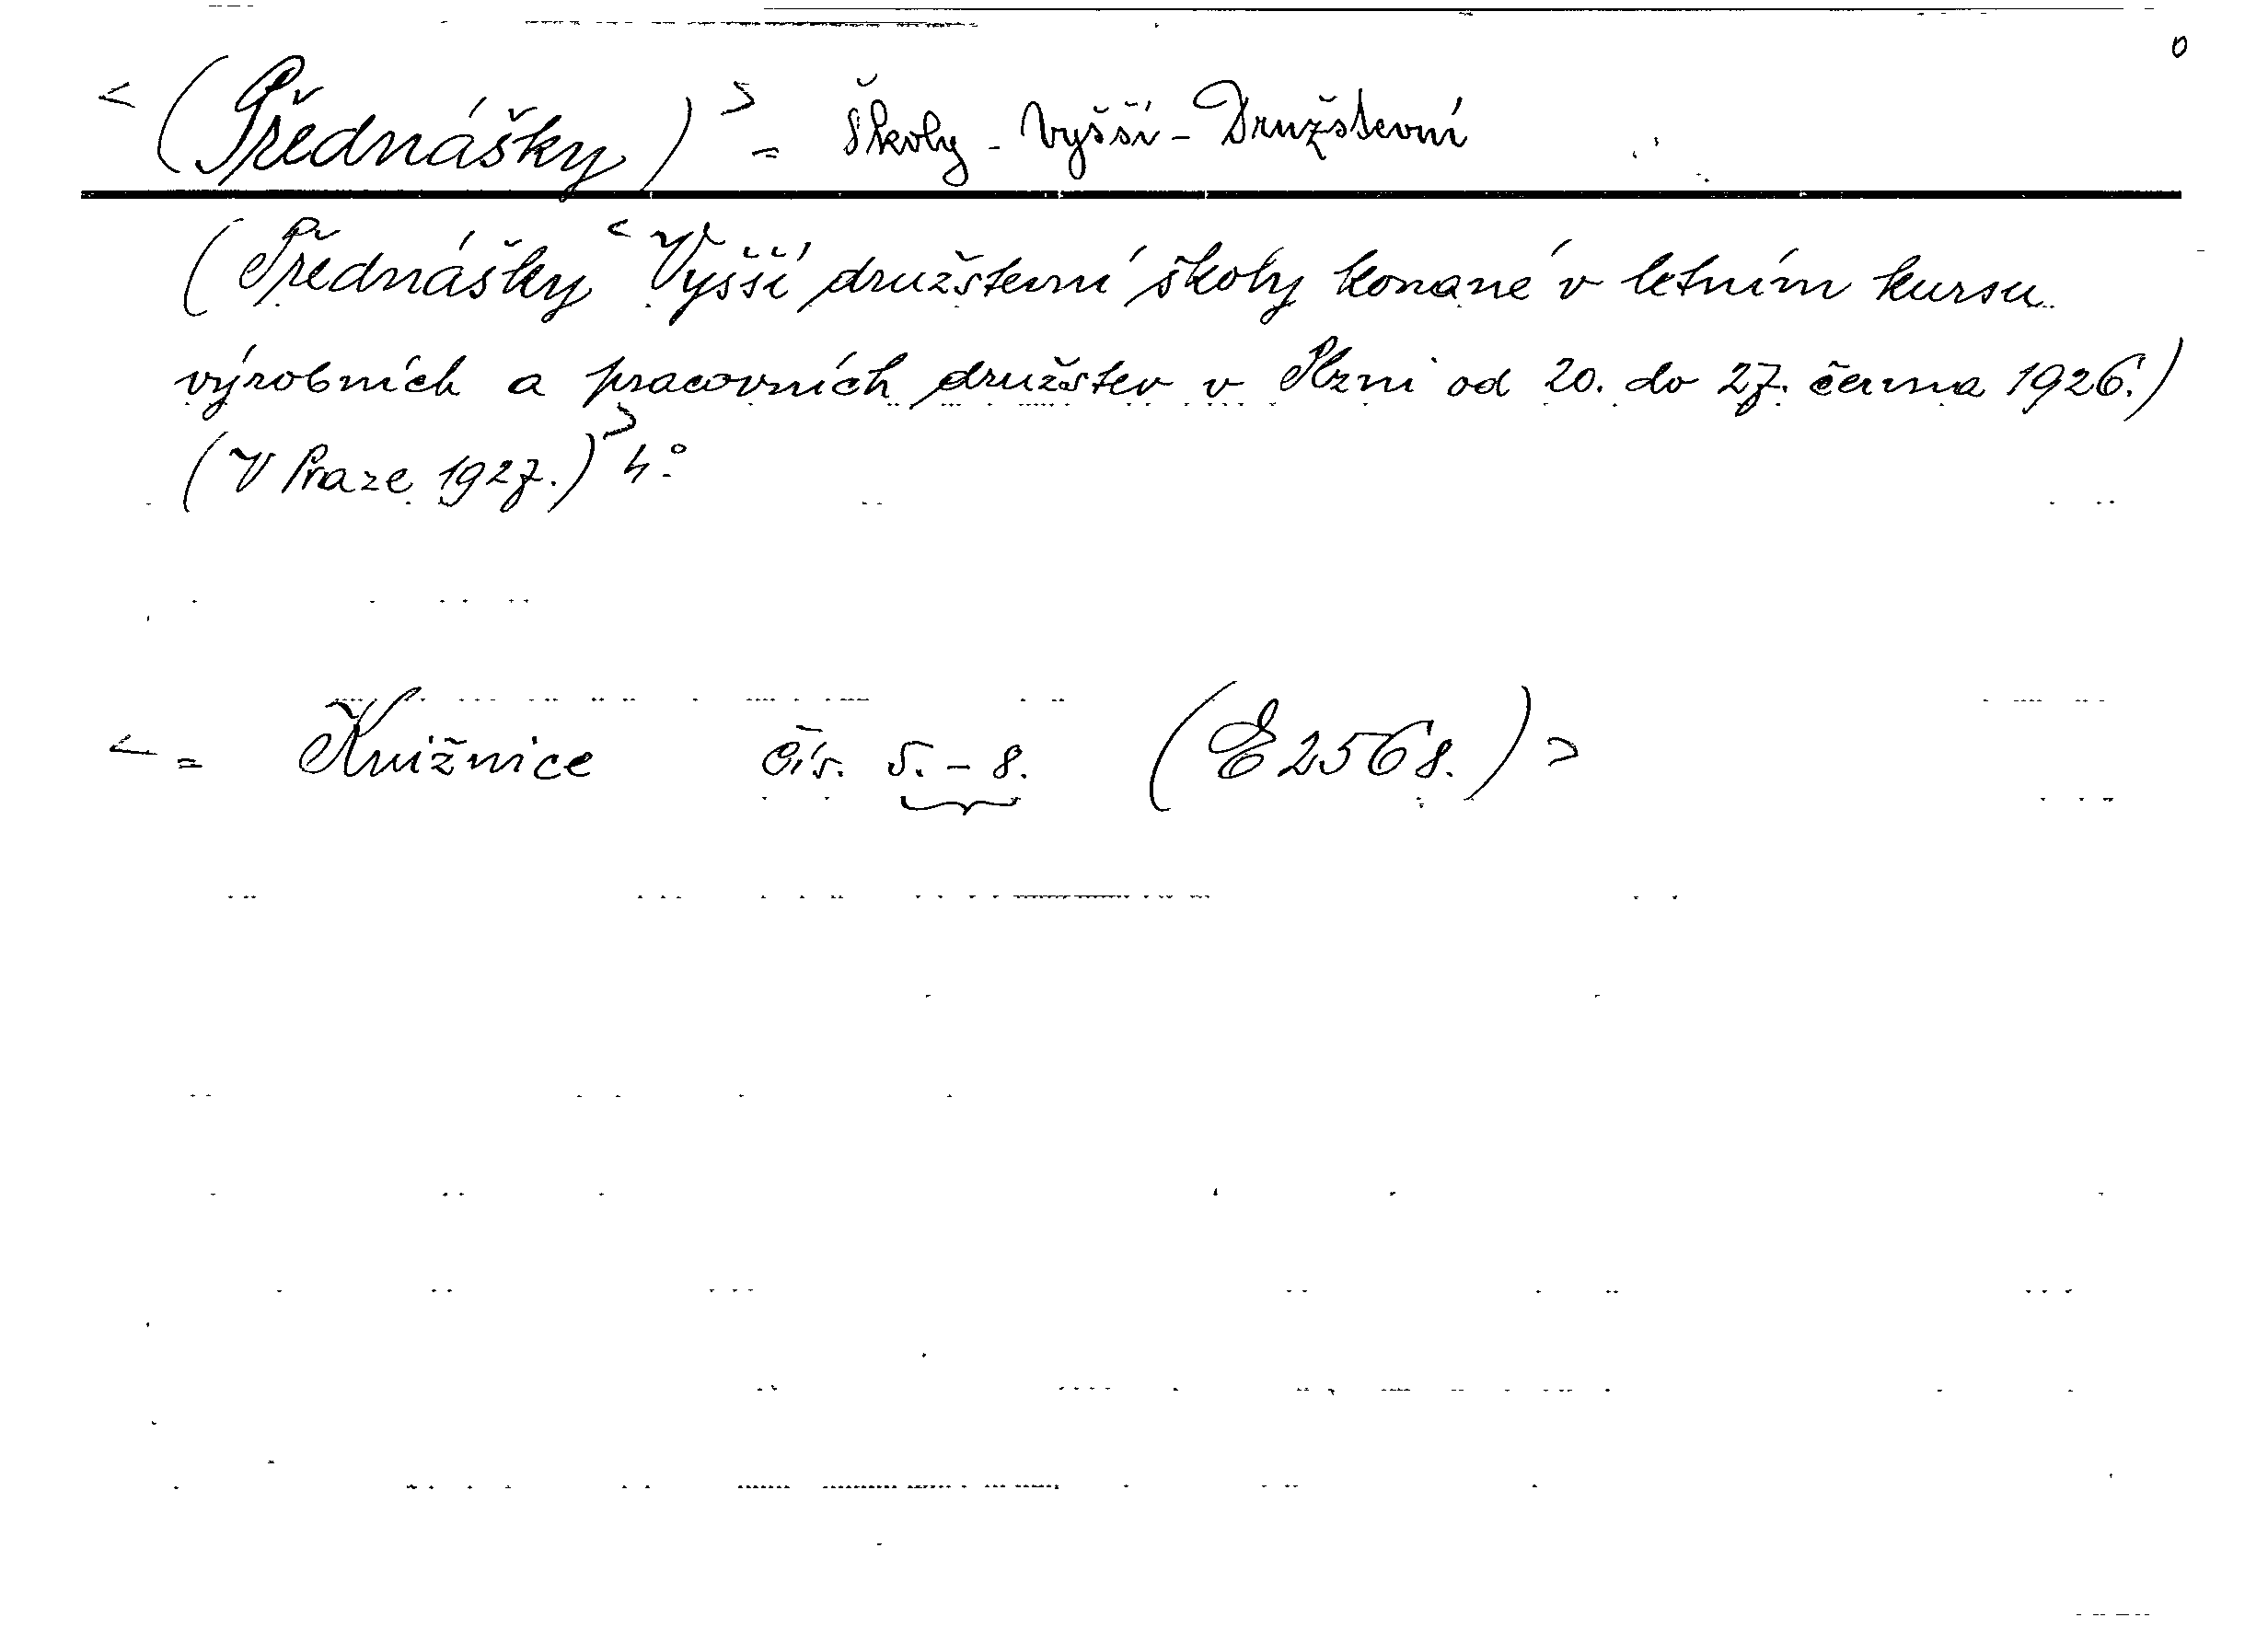 0
< (Přednášky) > = Školy - Vyšší - Družstevní
(Přednášky < Vyšší družstevní školy konané v letním kursu
výrobních a pracovních družstev v Plzni od 20. do 27. června 1926.)
(V Praze 1927.) > 4°.
< = Knižnice čís. 5. - 8. (E 2568.) >